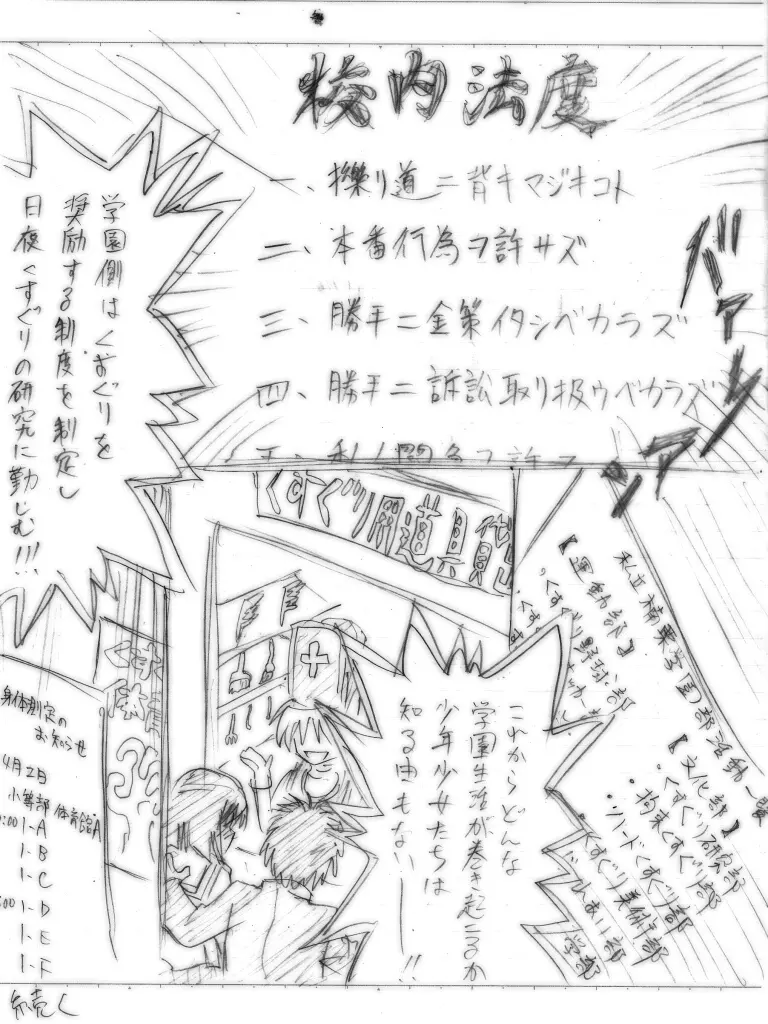 校内法度
一、擽り道ニ背キマジキコト
二、本番行為ヲ許サズ
三、勝手ニ金策イタシベカラズ
四、勝手ニ訴訟取リ扱ウベカラズ
バァァァン
学園側はくすぐりを
奨励する制度を制定し
日夜くすぐりの研究に勤しむ!!!
くすぐり用道具
私立
学園部活動一覧
【運動部】
・くすぐり野球部
【文化部】
・くすぐり研究部
・拘束くすぐり部
・ソフトくすぐり部
くすぐり美術部
くす
体育
身体測定の
お知らせ
4月2日
小等部 体育館A
1-A
1-B
1-C
1-D
1-E
1-F
これからどんな
学園生活が巻き起こるか
少年少女たちは
知る由もない——!!
続く